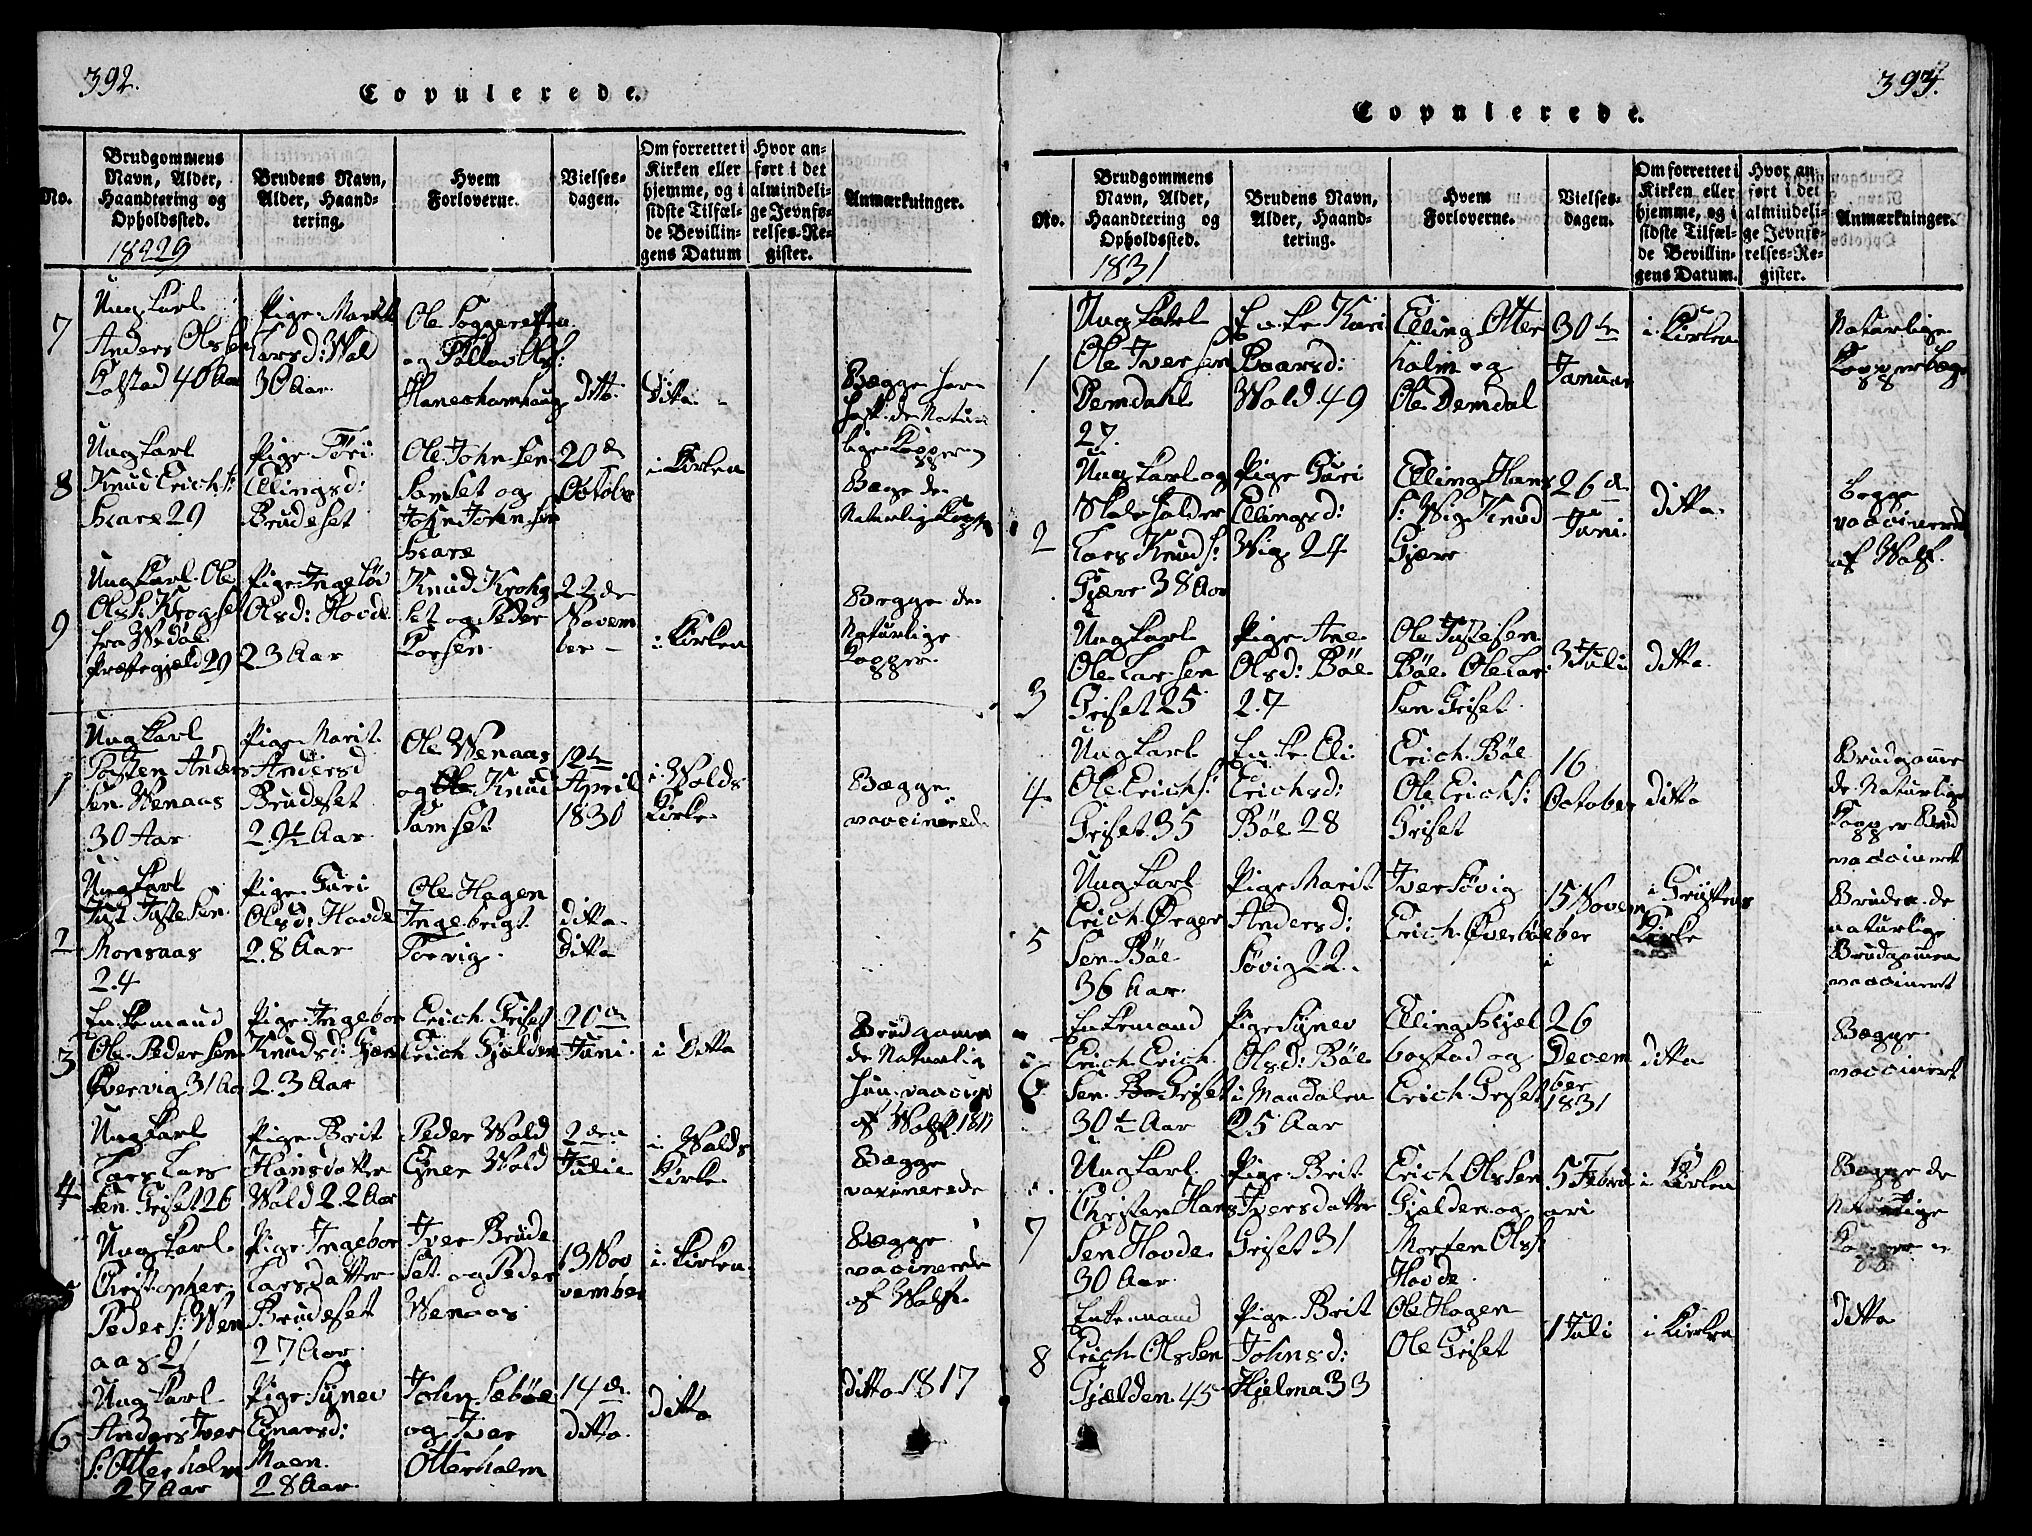 392.
Copulerede.
No.
Brudgommens
Navn, Alder,
Haandtering og
Opholdssted.
Brudens Navn,
Alder, Haand-
tering.
Hvem
Forloverne.
Vielses-
dagen.
Om forrettet i
Kirken eller
hjemme, og i
sidste Tilfæl-
de Bevillin-
gens Datum
Hvor an-
ført i det
almindeli-
ge Jevnfø-
relses-Re-
gister.
Anmærkninger.
18229
7
Ungkarl
Anders Olssen
Kolstad 40 Aar
Pige Marit
Larsd: Wold
30 Aar
Ole
og
ditto
Ditta
Bægge har
haft de Natur
lige Kopper
8
Ungkarl
Knud Erichs:
Hare 29
Pige Töri
Ellingsd:
Brudeset
Ole Johnsen
Samset og
John Johnsen
Hare
20de
Octobr
i Kirken
Bæge de
Naturlig Kopper
9
Ungkarl Ole
Ols: Krogset
fra Wedöe
Præstegjæld 29
Pige Ingeløv
Olsd: Hovde
23 Aar
Knud Krohg
set og Peder
Korsen
22de
Novem
ber
i Kirken
Begge de
Naturlige
Kopper
1
Ungkarl
Tosten Anders
sen Wenaas
30 Aar
Pige Marit
Andersd
Brudeset
29½ Aar
Ole Wenaas
og Ole Knud
Samset
12te
April
1830
i Wolds
Kirke
Bægge
vaccinerede
2
Ungkarl
Just Justesen
Monsaas
24
Pige Guri
Olsd: Hovde
28 Aar
Ole Hagen
Ingebrigt
Torvig
ditta
ditta
3
Enkemand
Ole Pedersen
Overvig 31 Aar
Pige Ingebor
Knudsd: Gjære
23 Aar
Erich Griset
Erich Gjelden
20de
Juni
i Ditta
Brudgomen
de Naturlig
hun vaccin
af Wolf 1817
4
Ungkarl
Lars Lars
sen Griset 26
Pige Brit
Hansdatter
Wold 22 Aar
Peder Wold
Einer Wold
2den
Julie
i Wolds
Kirke
Bægge
vaxinerede
5
Ungkarl
Christopher
Peders: Wen
aas 2
Pige Ingebor
Larsdatter
Brudeset
27 Aar
Iver Brude
set og Peder
Wenaas
13 Nov
vember
i Kirken
Bægge
vaccinerede
af Wolf
6
Ungkarl
Anders Iver
s: Otterholm
27 Aar
Pige Synev
Einarsd:
Moen
28 Aar
John Sæböe
og Iver
Otterholm
14de
ditta
ditta
ditto 1817
393.
Copulerede.
No.
Brudgommens
Navn, Alder,
Haandtering og
Opholdssted.
Brudens Navn,
Alder, Haand-
tering.
Hvem
Forloverne.
Vielses-
dagen.
Om forrettet i
Kirken eller
hjemme, og i
sidste Tilfæl-
de Bevillin-
gens Datum.
Hvor an-
ført i det
almindeli-
ge Jevnfø-
relses-Re-
gister.
Anmærkninger.
1831
1
Ungkarl
Ole Iversen
Demdahl
27
Enke Kari
Baarsd:
Wold 49
Elling Otter
holm og
Ole Demdal
30te
Januar
i Kirken
Naturlige
Kopperbæge
2
Ungkarl og
Skoleholder
Lars Knuds:
Gjære 38 Aar
Pige Guri
Ellingsd:
Wig 24
Elling Hans
s: Wig Knud
Gjære
26de
Juni
ditta
begge
vaccinered
af Wolf.
3
Ungkarl
Ole Larsen
Griset 25
Pige Ane
Olsd: Böe
27
Ole Justesen
Böe Ole Lar
sen Griset
3 Juli
ditta
4
Ungkarl
Ole Erichs:
Griset 35
Enke Eli
Erichsd:
Böe 28
Erich Böe
Ole Erichs:
Griset
16
October
ditta
Brudgomme
de Naturlige
Kopper Brud
vaccinert
5
Ungkarl
Erich Ørger
sen Böe
36 Aar
Pige Marit
Andersd:
Søvig 22
Iver Søvig
Erich Øverböe
15 Novem
ber
i Grøttens
Kirke
Bruden de
naturlige
Brudgomen
vaccinert
6
Enkemand
Erich Erich
sen Griset
30½ Aar
Pige Synev
Olsd: Böe
i Mandalen
25 Aar
Elling Hjel
bostad og
Erich Griset
26
Decem
ber
1831
ditta
Bægge
vaccinert
7
Ungkarl
Christen Hans
sen Hovde
30 Aar
Pige Brit
Iversdatter
Griset 31
Erich Olssen
Gjelden og
Morten Ols:
Hovde
5 Febru
ari
i Kirken
Bægge de
Naturlige
Kopper
8
Enkemand
Erich Olssen
Gjælden 45
Pige Brit
Johnsd:
Hjelma 33
Ole Hagen
Ole Griset
1 Juli
i Kirken
ditta